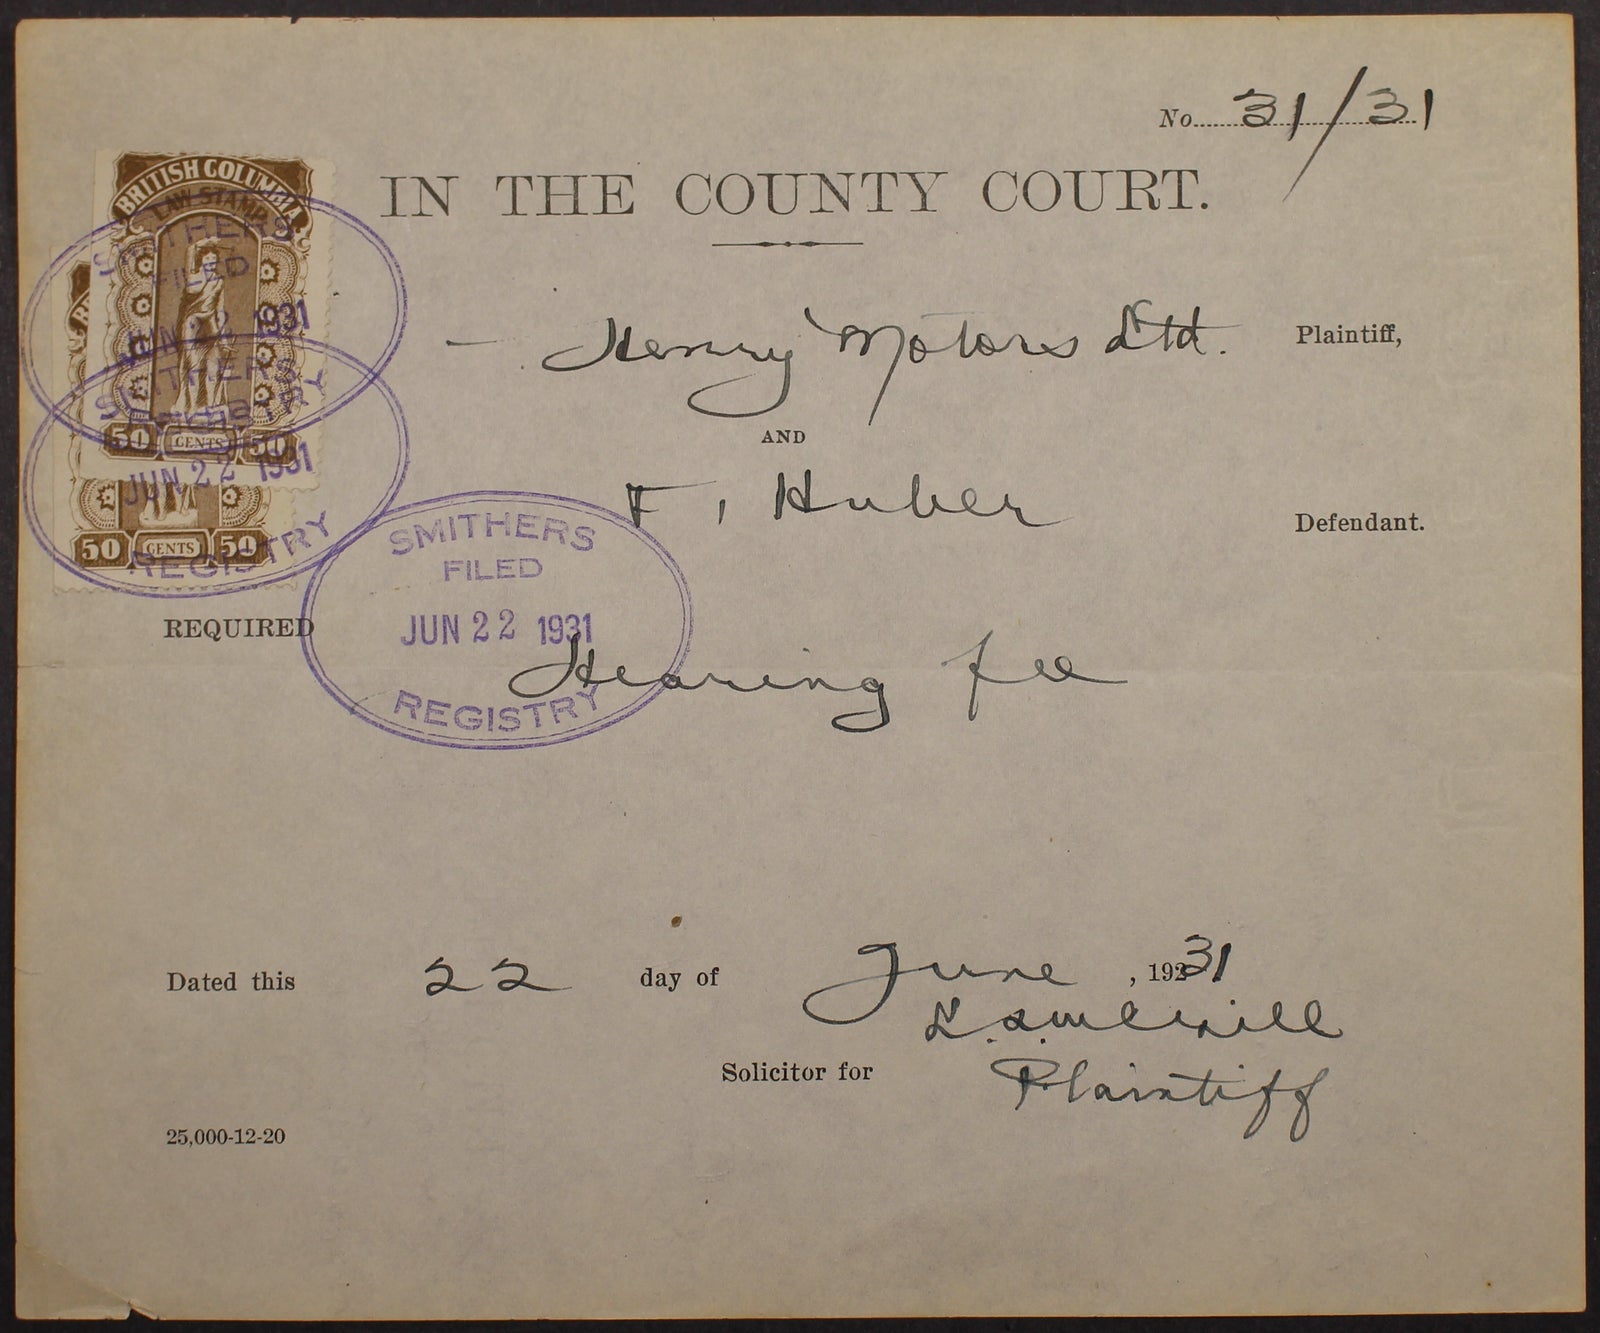 No. 31/31
IN THE COUNTY COURT.
BRITISH COLUMBIA
LAW STAMP
SMITHERS
FILED
JUN 22 1931
REGISTRY
50 CENTS 50
SMITHERS
JUN 22 1931
REGISTRY
50 CENTS 50
Henry Motors Ltd. Plaintiff,
AND
F. Huber Defendant.
SMITHERS
FILED
JUN 22 1931
REGISTRY
REQUIRED
Hearing fee
Dated this 22 day of June, 19231
Solicitor for Plaintiff
25,000-12-20